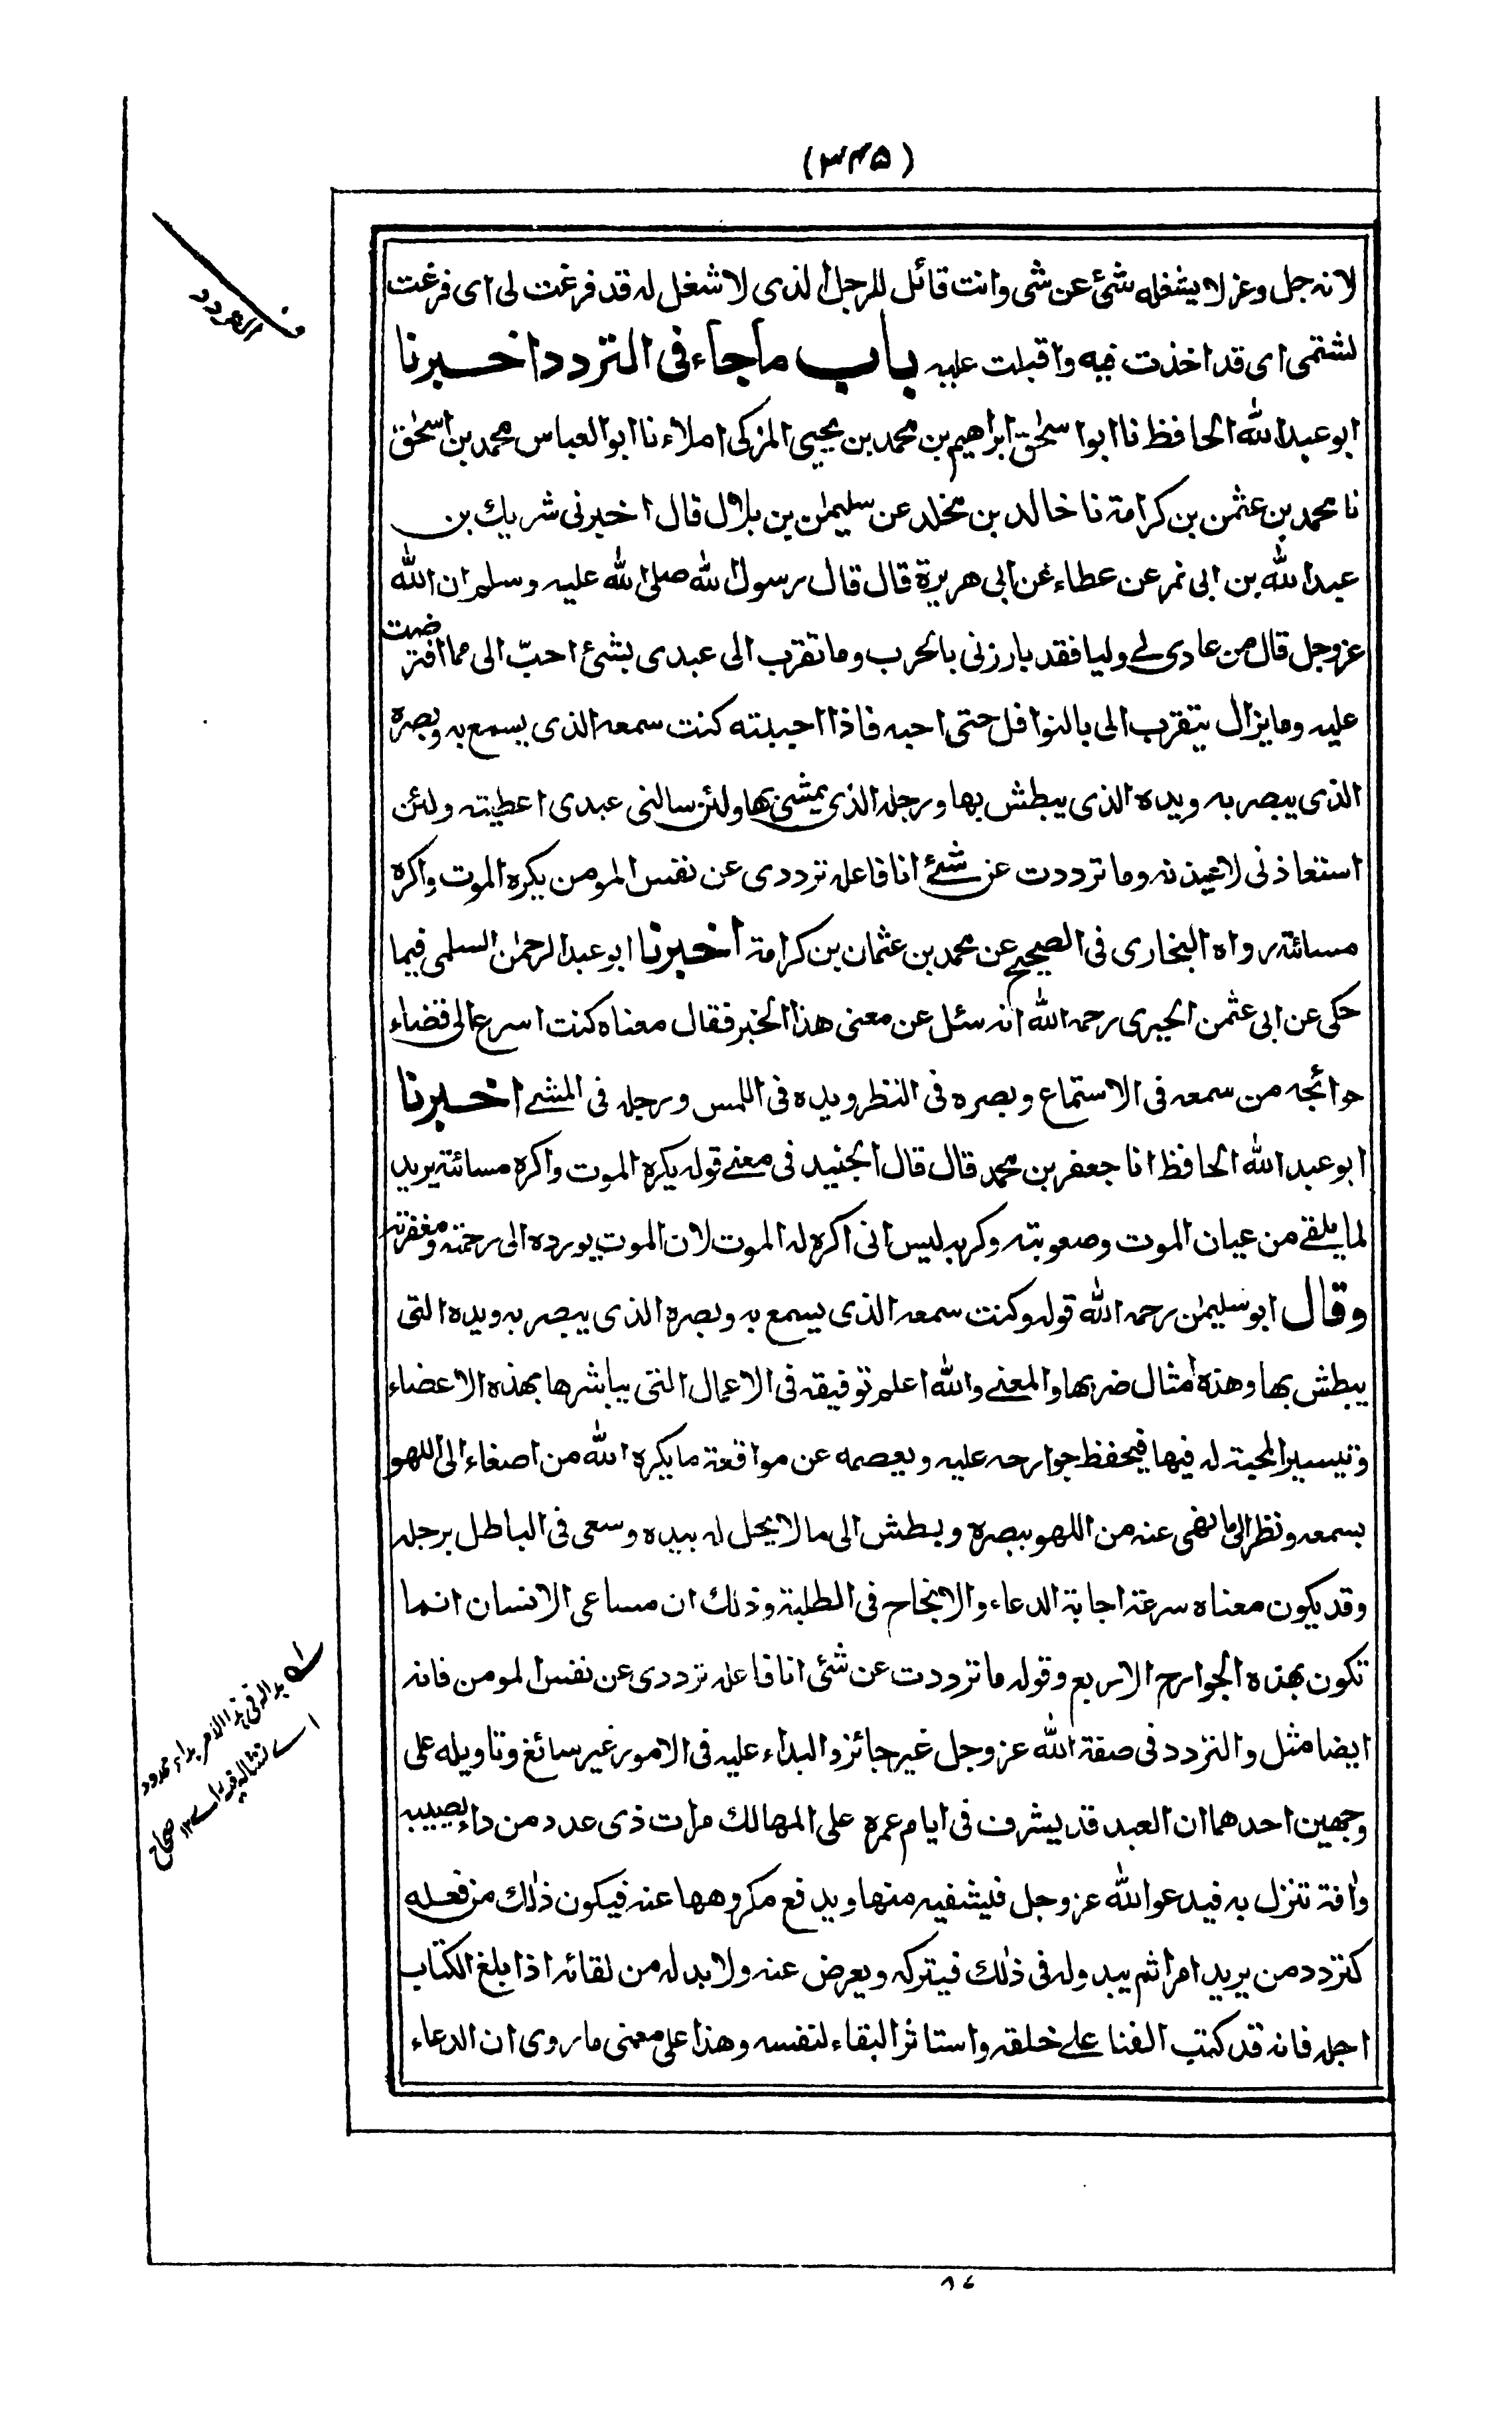 (٣٤٥)
لانه جل وعز لا يشغله شئ عن شى وانت قائل للرجل الذى لا شغل له قد فرغت لى اى فرغت
لشتمى اى قد اخذت فيه واقبلت عليه باب ما جاء فى التردد اخبرنا
ابو عبد الله الحافظ نا ابوا سحٰق ابراهيم بن محمد بن يحيى المزكى املاء نا ابو العباس محمد بن اسحٰق
نا محمد بن عثمٰن بن كرامة نا خالد بن مخلد عن سليمٰن بن بلال قال اخبرنى شريك بن
عبد الله بن ابى نمر عن عطاء عن ابى هريرة قال قال رسول الله صلى الله عليه وسلم ان الله
عز وجل قال من عادى لے وليا فقد بارزنى بالحرب وما تقرب الى عبدى بشئ احبّ الى مما افترضت
عليه وما يزال يتقرب الى بالنوافل حتى احبه فاذا احببته كنت سمعه الذى يسمع به وبصره
الذى يبصر به ويده الذى يبطش بها ورجله الذى يمشى بها ولئن سالنى عبدى اعطيته ولئن
استعاذنى لاعيذنه وما ترددت عن شئ انا فاعله ترددى عن نفس المومن يكره الموت واكره
مسائته رواه البخارى فى الصحيح عن محمد بن عثمان بن كرامة اخبرنا ابو عبد الرحمٰن السلمى فيما
حكى عن ابى عثمٰن الحيرى رحمه الله انه سئل عن معنى هذا الخبر فقال معناه كنت اسرع الى قضاء
حوائجه من سمعه فى الاستماع وبصره فى النظر ويده فى اللمس ورجله فى المشے اخبرنا
ابو عبد الله الحافظ انا جعفر بن محمد قال قال الجنيد فى معنے قوله يكره الموت واكره مسائته يريد
لما يلقے من عيان الموت وصعوبته وكربه ليس انى اكره له الموت لان الموت يورده الى رحمته ومغفرته
وقال ابو سليمٰن رحمه الله قوله وكنت سمعه الذى يسمع به وبصره الذى يبصر به ويده التى
يبطش بها وهذه أمثال ضربها والمعنے والله اعلم توفيقه فى الاعمال التى يباشرها بهذه الاعضاء
وتيسير المحبة له فيها فيحفظ جوارحه عليه ويعصمه عن مواقعة ما يكره الله من اصغاء الى اللهو
بسمعه ونظر الى ما نهى عنه من اللهو ببصره وبطش الى ما لا يحل له بيده وسعى فى الباطل برجله
وقد يكون معناه سرعة اجابة الدعاء والانجاح فى الطلبة وذلك ان مساعى الانسان انما
تكون بهذه الجوارح الاربع وقوله ما ترددت عن شئى انا فاعله ترددى عن نفس المومن فانه
ايضا مثل والتردد فى صفة الله عز وجل غير جائز والبداء عليه فى الامور غير سائغ وتاويله على
وجهين احدهما ان العبد قد يشرف فى ايام عمره على المهالك مرات ذى عدد من داء يصيبه
وافة تنزل به فيدعو الله عز وجل فيشفيه منها ويدفع مكروهها عنه فيكون ذٰلك من فعله
كتردد من يريد امرا ثم يبدو له فى ذٰلك فيتركه ويعرض عنه ولا بد له من لقائه اذا بلغ الكتاب
اجله فانه قد كتب الفنا علے خلقه واستاثر البقاء لنفسه وهذا على معنى ما روى ان الدعاء
بدا له فى هذا الأمر بداء ممدود
صحاح